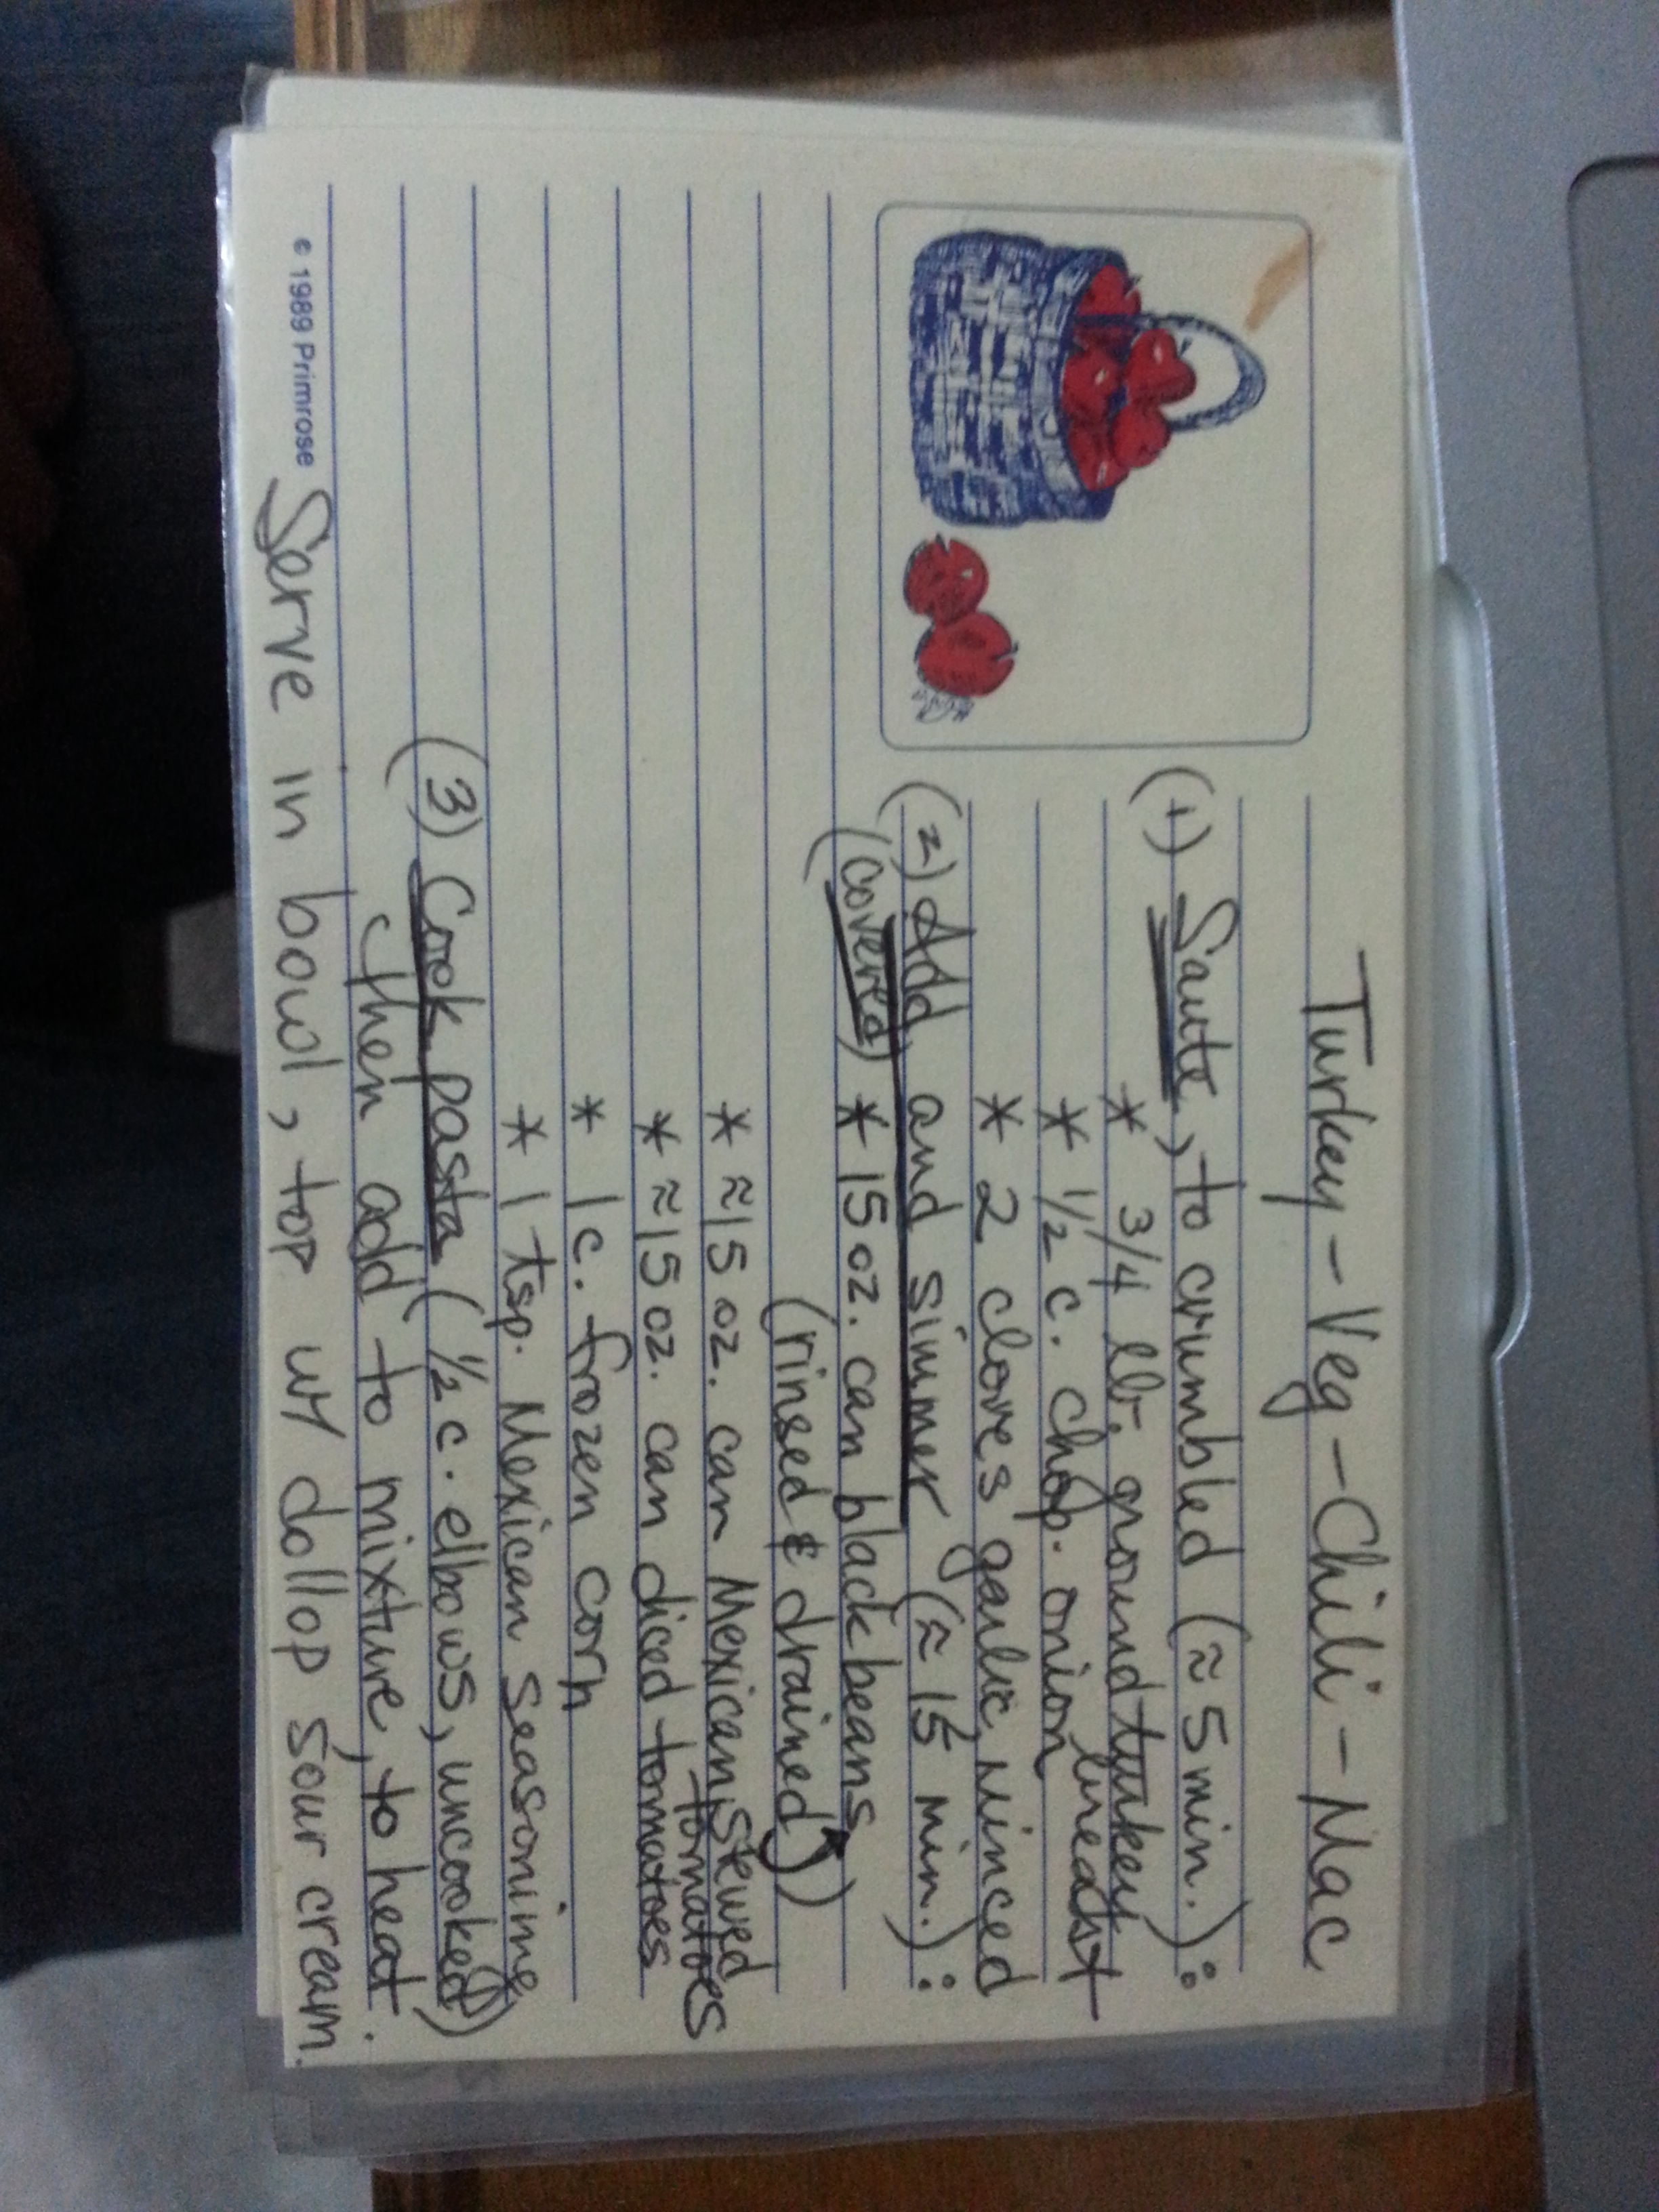 Turkey-Veg-Chili-Mac
(1) Saute, to crumbled (≈5 min.):
* 3/4 lb. ground turkey breast
* 1/2 c. chop. onion
* 2 cloves garlic, minced
(2) Add and simmer (≈15 min.):
(covered) * 15 oz. can black beans
(rinsed & drained)
* ≈15 oz. can Mexican stewed tomatoes
* ≈15 oz. can diced tomatoes
* 1 c. frozen corn
* 1 tsp. Mexican seasoning
(3) Cook pasta (1/2 c. elbows, uncooked)
then add to mixture, to heat.
Serve in bowl, top w/ dollop sour cream.
© 1989 Primrose